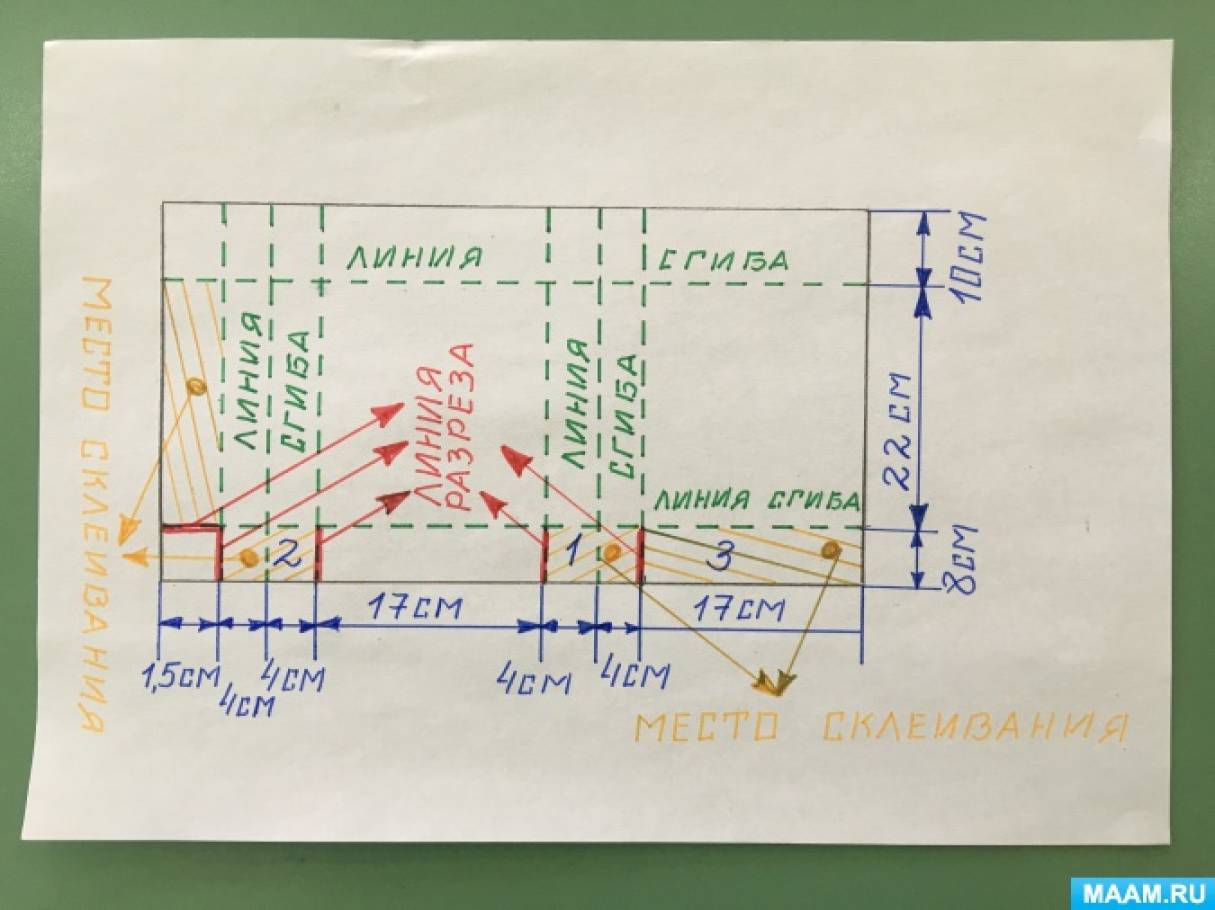 ЛИНИЯ СГИБА
10СМ
МЕСТО СКЛЕИВАНИЯ
ЛИНИЯ
СГИБА
ЛИНИЯ
РАЗРЕЗА
ЛИНИЯ
СГИБА
22СМ
ЛИНИЯ СГИБА
2
1
3
8СМ
17СМ
17СМ
1,5СМ
4СМ
4СМ
4СМ
4СМ
МЕСТО СКЛЕИВАНИЯ
MAAM.RU